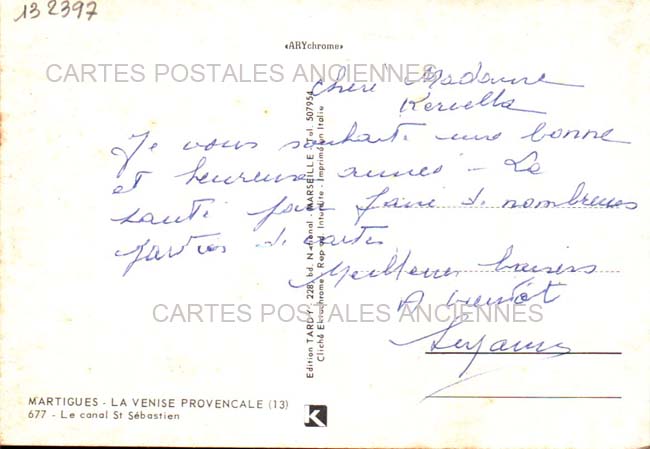 132397
«ARYchrome»
CARTES POSTALES ANCIENNES
Chere Madame
Kervella
Je vous souhaite une bonne
et heureuse année - La
santé pour faire de nombreuses
parties de cartes
Meilleurs baisers
A bientôt
CARTES POSTALES ANCIENNES
Suzanne
Edition TARDY, 228, bd. National - MARSEILLE
Tél. 507954
Cliché Ektachrome - Rep
Interdite - Imprimé en Italie
MARTIGUES - LA VENISE PROVENCALE (13)
677 - Le canal St Sébastien
K